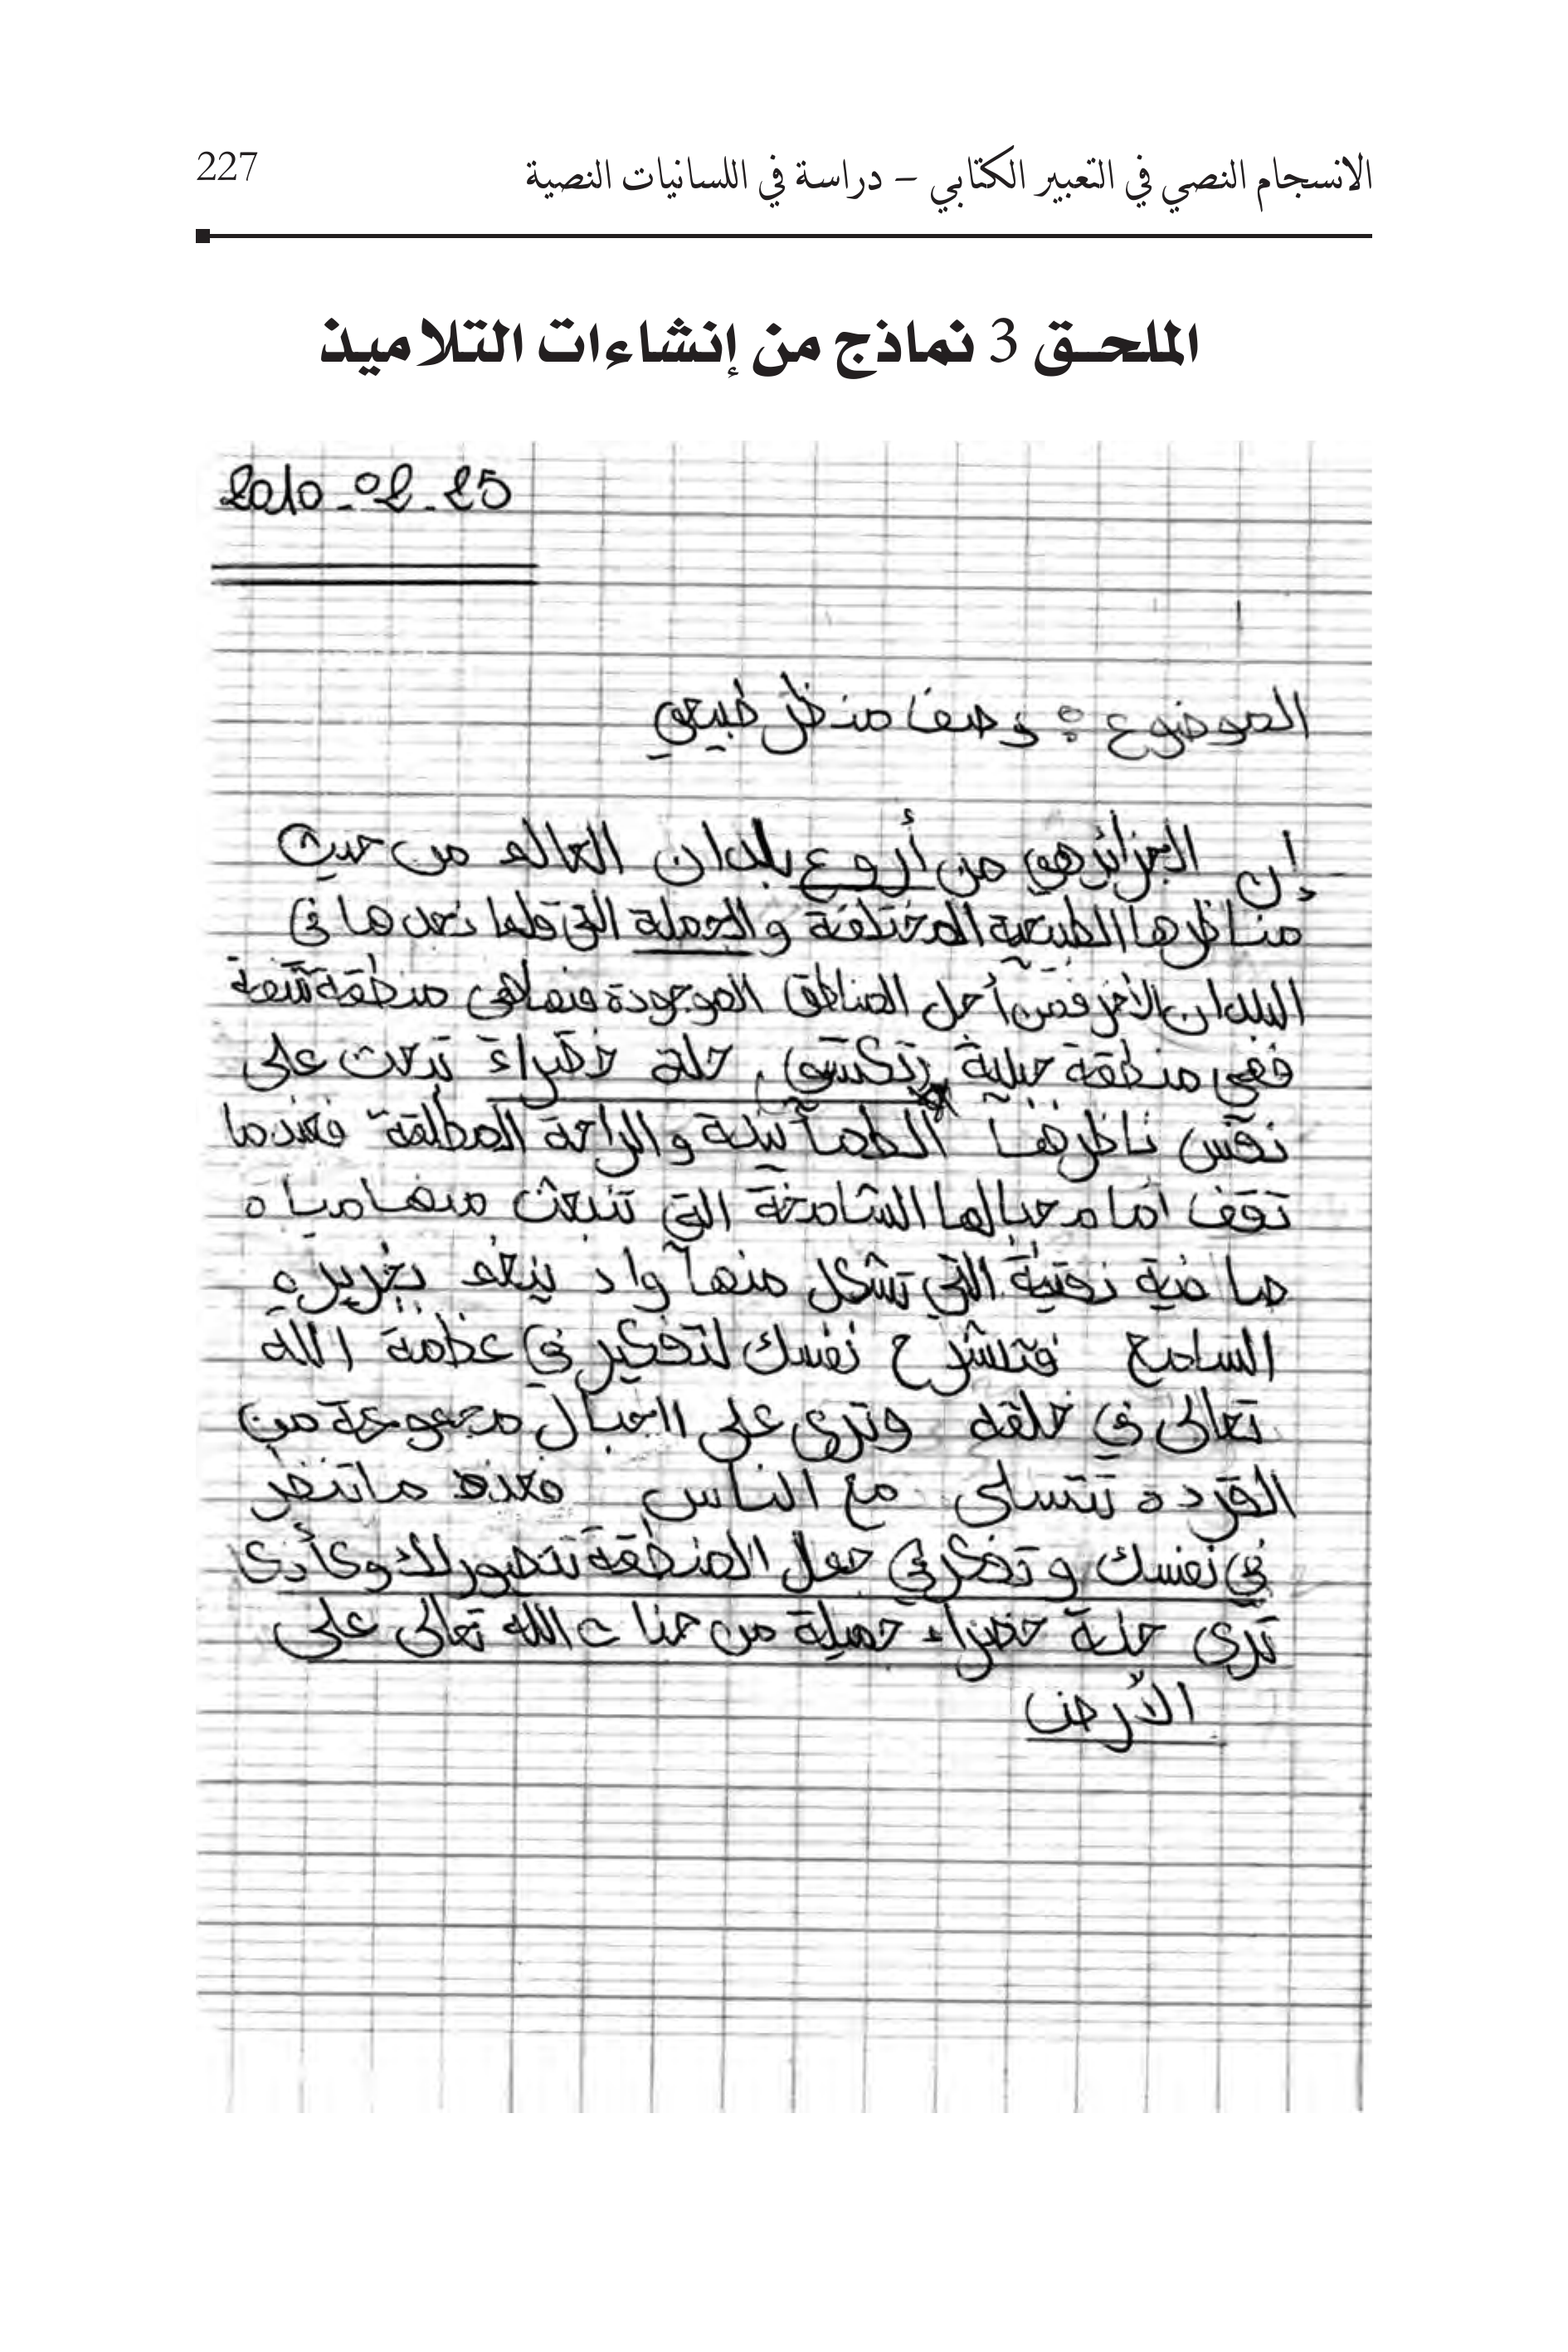 الانسجام النصي في التعبير الكتابي – دراسة في اللسانيات النصية
227
الملحـق 3 نماذج من إنشاءات التلاميذ
2010-02-25
الموضوع : وصف منظر طبيعي
إن الجزائر هي من أروع بلدان العالم من حيث
مناظرها الطبيعية المختلفة والجميلة التي قلما نجدها في
البلدان الأخر فمن أجل المناطق الموجودة منطقة
فهي منطقة جبلية تكتسي حلة خضراء تبعث على
نفس ناظرها الطمأنينة والراحة المطلقة فعندما
تقف أمام جبالها الشامخة التي تنبعث منها مياه
صافية نقية التي تشكل منها واد ينغم بخريره
السامع فتنشرح نفسك لتفكير في عظمة الله
تعالى في خلقه وترى على الجبال مجموعة من
القردة تتسلى مع الناس فعند ما تنظر
في نفسك وتفكر في جمل المنطقة تتصور لك وكأنك
ترى جنة خضراء جميلة من جنات الله تعالى على
الأرض